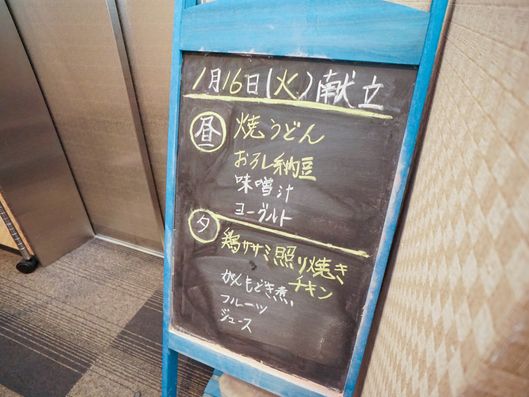 1月16日(火)献立
昼 焼うどん
おろし納豆
味噌汁
ヨーグルト
夕 鶏ササミ照り焼き
チキン
がんもどき煮い
フルーツ
ジュース